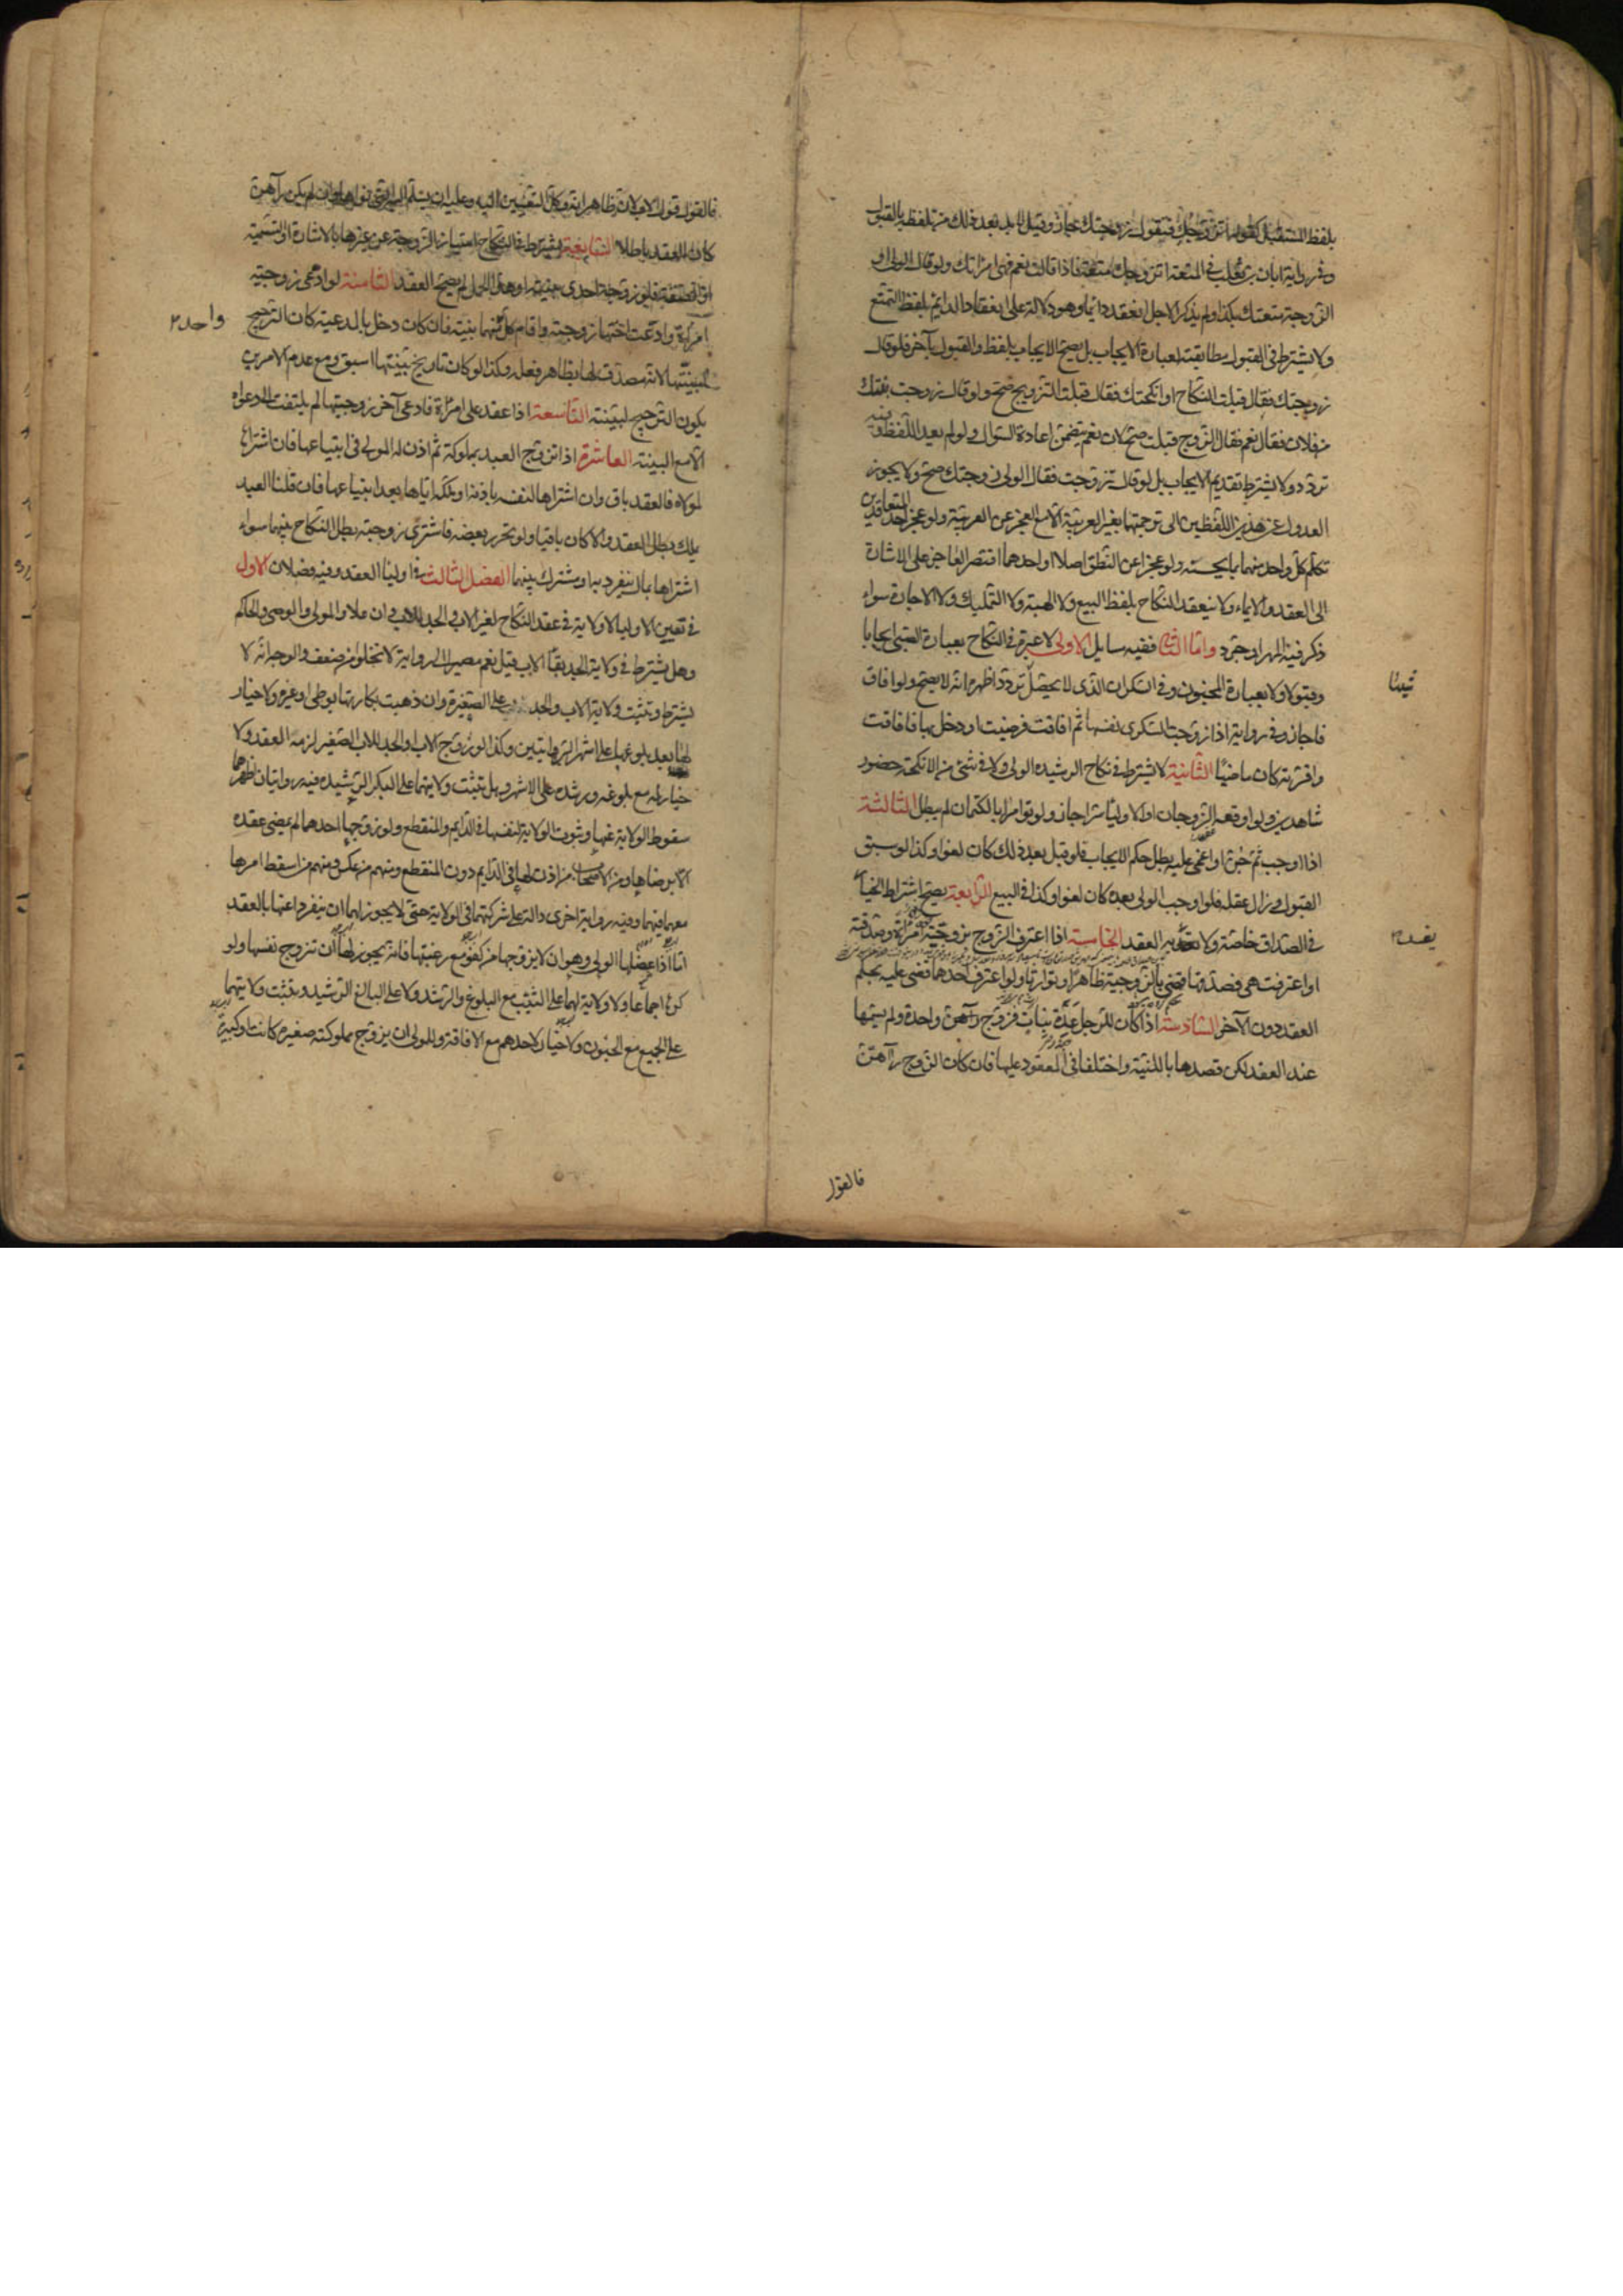 بلفظ المستقبل كقوله اتزوجك فتقول زوجتك جاز وقيل لا بد بعد ذلك من تلفظه بالقبول
وفي رواية ابان بن تغلب في المتعة اتزوجك متعة فاذا قالت نعم فهي امراتك ولو قال الولي او
الزوجة متعتك بكذا ولم يذكر الاجل انعقد دائما وهو دلالة على انعقاد الدائم بلفظ التمتع
ولا يشترط في القبول مطابقته لعبارة الايجاب بل يصح الايجاب بلفظ والقبول بآخر فلو قال
زوجتك فقال قبلت النكاح او انكحتك فقال قبلت التزويج صح ولو قال زوجت بنتك
من فلان فقال نعم فقال الزوج قبلت صح لان نعم يتضمن اعادة السوال ولو لم يعيد اللفظ وفيه
تردد ولا يشترط تقديم الايجاب بل لو قال تزوجت فقال الولي زوجتك صح ولا يجوز
العدول عن هذين اللفظين الى ترجمتها بغير العربية الا مع العجز عن العربية ولو عجز احد المتعاقدين
تكلم كل واحد منهما بما يحسنه ولو عجزا عن النطق اصلا او احدهما اقتصر العاجز على الاشارة
الى العقد والايماء ولا ينعقد النكاح بلفظ البيع ولا الهبة ولا التمليك ولا الاجارة سواء
ذكر فيه المهر او جرد واما الثاني ففيه مسايل الاولى لا عبرة في النكاح بعبارة الصبي ايجابا
وقبولا ولا بعبارة المجنون وفي السكران الذي لا يحصل تردد اظهره انه لا يصح ولو افاق
شيئا
فاجاز وفي رواية اذا زوجت السكرى نفسها ثم افاقت فرضيت او دخل بها فافاقت
واقرته كان ماضيا الثانية لا يشترط في نكاح الرشيده الولي ولا في شئ من الانكحة حضور
شاهدين ولو اوقعه الزوجان او الاولياء سرا جاز ولو توامرا بالكتمان لم يبطل الثالثة
اذا اوجب ثم جن او اغمى عليه بطل حكم الايجاب فلو قبل بعد ذلك كان لغوا وكذا لو سبق
القبول وزال عقله فلو اوجب الولي بعده كان لغوا وكذا في البيع الرابعة يصح اشتراط الخيار
في الصداق خاصة ولا يفسد به العقد الخامسة اذا اعترف الزوج بزوجية امراة وصدقته
يفسد
او اعترفت هي فصدقها قضي بالزوجية ظاهرا وتوارثا ولو اعترف احدهما قضى عليه بحكم
العقد دون الآخر السادسة اذا كان للرجل عدة بنات فزوج واحدة ولم يسمها
عند العقد لكن قصدها بالنية واختلفا في المعقود عليها فان كان الزوج رآهن
فالقول
فالقول قول الاب لان الظاهر انه وكل التعيين اليه وعليه ان يسلم اليه التي نواها وان لم يكن رآهن
كان العقد باطلا السابعة يشترط في النكاح امتياز الزوجة عن غيرها بالاشارة او التسمية
او الصفة فلو زوجه احدى بنتيه او هذا الحمل لم يصح العقد الثامنة لو ادعى زوجية
امراة وادعت اختها زوجيته واقام كل منهما بينة فان كان دخل بالمدعية كان الترجيح
واحد
لبينتها لانه مصدق لها بظاهر فعله وكذا لو كان تاريخ بينتها اسبق ومع عدم الامرين
يكون الترجيح لبينته التاسعة اذا عقد على امراة فادعى آخر زوجيتها لم يلتفت الى دعواه
الا مع البينة العاشرة اذا تزوج العبد بمملوكة ثم اذن له المولى في ابتياعها فان اشتراها
لمولاه فالعقد باق وان اشتراها لنفسه باذنه او ملكه اياها بعد ابتياعها فان قلنا العبد
يملك بطل العقد والا كان باقيا ولو تحرر بعضه فاشترى زوجته بطل النكاح بينهما سواء
اشتراها بمال منفرد به او مشترك بينهما الفصل الثالث في اولياء العقد وفيه فصلان الاول
في تعيين الاولياء لا ولاية في عقد النكاح لغير الاب والجد للاب وان علا والمولى والوصي والحاكم
وهل يشترط في ولاية الجد بقاء الاب قيل نعم مصيرا الى رواية لا تخلو من ضعف والوجه انه لا
يشترط وتثبت ولاية الاب والجد على الصغيرة وان ذهبت بكارتها بوطي او غيره ولا خيار
لها بعد بلوغها على اشهر الروايتين وكذا لو زوج الاب او الجد للاب الصغير لزمه العقد ولا
خيار له مع بلوغه ورشده على الاشهر وهل تثبت ولايتهما على البكر الرشيده فيه روايات اظهرها
سقوط الولاية عنها وثبوت الولاية لنفسها في الدايم والمنقطع ولو زوجها احدهما لم يمض عقده
الا برضاها ومن الاصحاب من اذن لها في الدايم دون المنقطع ومنهم من عكس ومنهم من اسقط امرها
معهما فيهما وفيه رواية اخرى دالة على شركتهما في الولاية حتى لا يجوز لهما ان ينفردا عنها بالعقد
اما اذا عضلها الولي وهو ان لا يزوجها من كفو مع رغبتها فانه يجوز لها ان تزوج نفسها ولو
كرها اجماعا ولا ولاية لهما على الثيب مع البلوغ والرشد ولا على البالغ الرشيد وتثبت ولايتهما
على الجميع مع الجنون ولا خيار لاحدهم مع الافاقة وللمولى ان يزوج مملوكته صغيره كانت او كبيرة